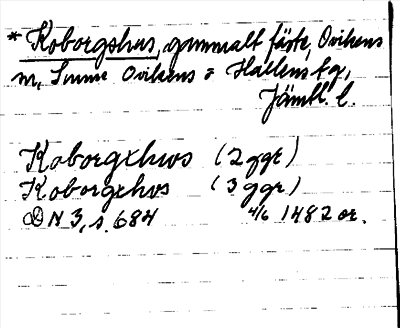 * Koborgshus, gammalt fäste, Ovikens
m, Sunne Ovikens o Hallens tg,
Jämtl. l.
Koborgxhwos (2 ggr)
Koborgxhos (3 ggr)
DN 3, s. 684 4/6 1482 or.